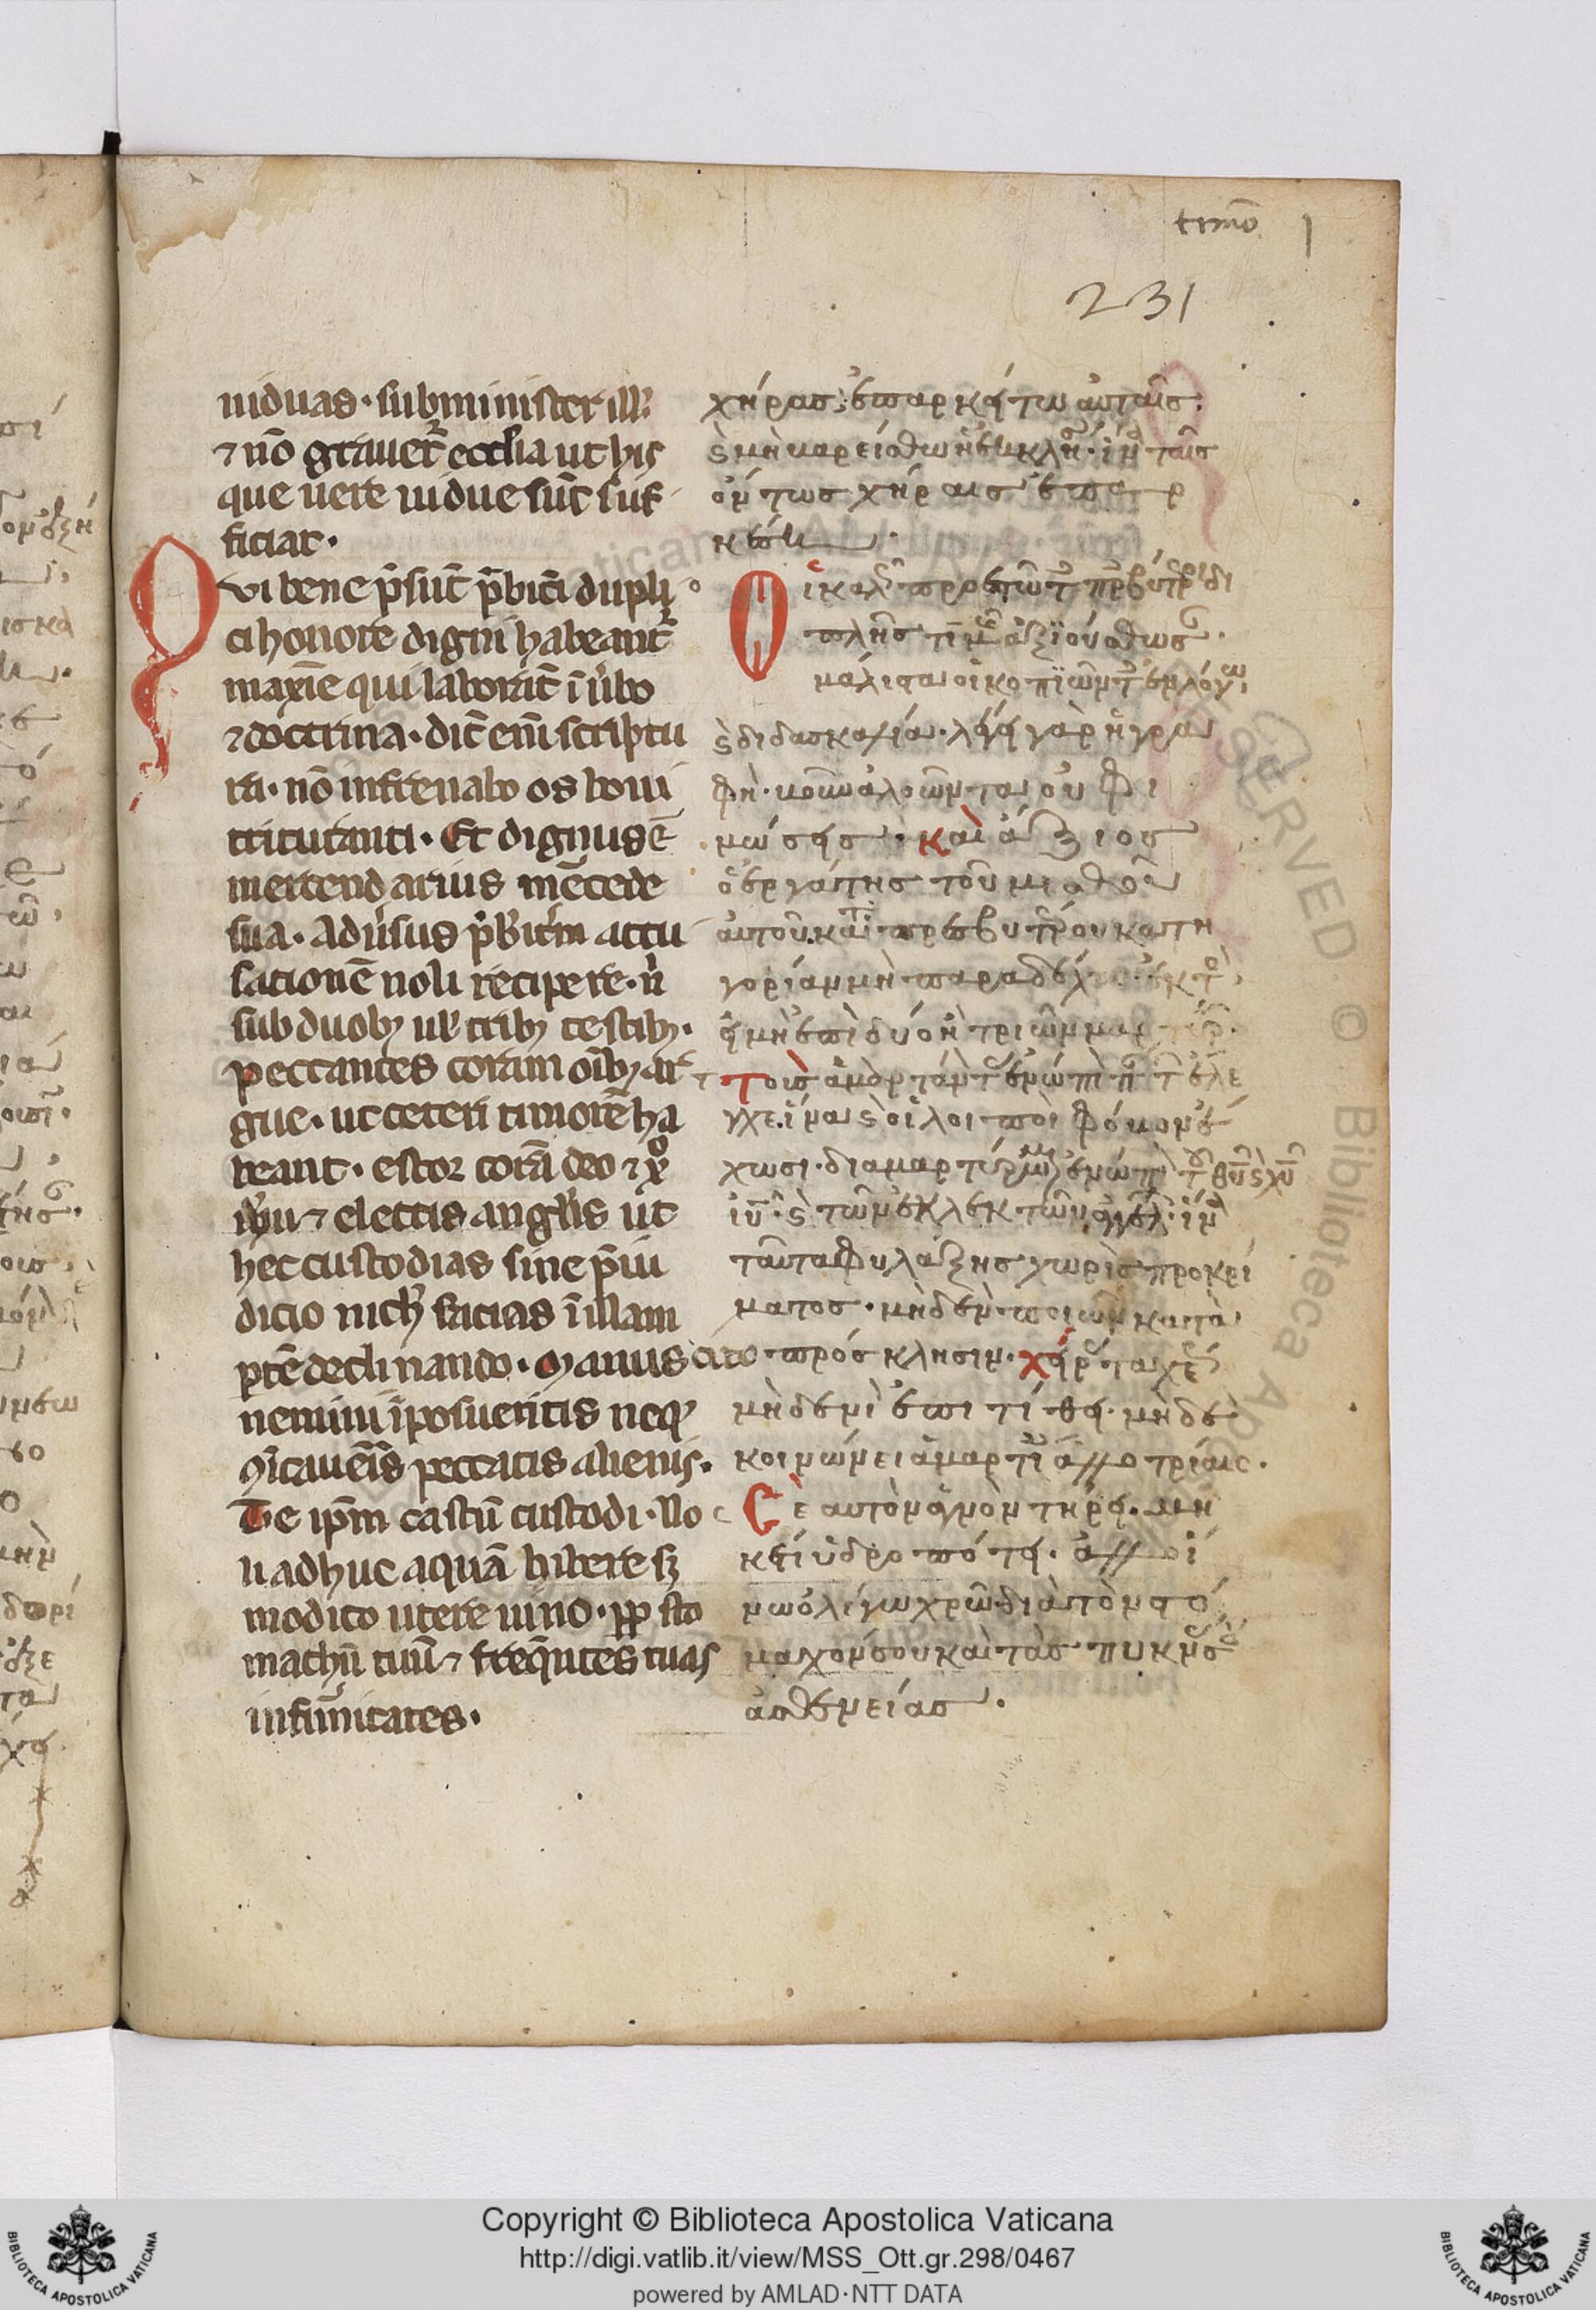 timō 1
231
uiduas · subminister ill'
⁊ nō grauet᷑ ecclīa ut his
que uere uidue sūt suf
ficiat ·
Qvi bene p̄sūt p̄biťi dupli
ci honore digni habeant᷑
maxīe qui laborāt ī ūbo
⁊ doctrina · dic̄ enī scriptu
ra · nō infrenabo os boui
trituranti · Et dignus ē
mercenđarius m̄cede
sua · Aduīsus p̄bit̄m accu
sationē noli recipere · ň
sub duobꝫ ul' tribꝫ testibꝫ ·
peccantes coram oībꝫ ar
gue · ut ceteri timorē ha
beant · estor corā deo ⁊ xͦ
ihu ⁊ electis angl'is ut
hec custodias sine p̄iu
dicio nich' facias ī illam
ptē declinando · Manus cito
nemini īposueritis neqꝫ
ꝯicauēis peccatis alienis ·
Te ip̄m castū custodi · No
li adhuc aquā bibere sꝫ
modico utere uino · pp̄ sto
machū tuū ⁊ freq̄ntes tuas
infirmitates ·
χήρας· ἐπαρκείτω αὐταῖς·
ϗ μὴ βαρείσθω ἡ ἐκκλη· ἵνα ταῖς
ὄντως χήραις ἐπαρ
κέση·
Οἱ καλ προεστῶτ πρεσβυτερ δι
πλῆς τιμ ἀξιούσθωσ·
μάλιστα οἱ κοπιῶντ ἐν λόγω
ϗ διδασκαλία· λέγει γὰρ ἡ γρα
φὴ· βοῦν ἀλοῶντα οὐ φι
μώσεις· καὶ ἄξιος
ὁ ἐργάτης τοῦ μισθοῦ
αὐτοῦ· κατὰ πρεσβυτέρου κατη
γορίαν μὴ παραδέχου· ἐκτ
εἰ μὴ ἐπὶ δύο ἢ τριῶν μαρτύρ·
Τοὺς ἁμαρτάντ ἐνώπ π̄τ ἔλε
γχε· ἵνα ϗ οἱ λοιποὶ φόβον ἔ
χωσι· διαμαρτύρομ ἐνώπ τ θῡ ϗ χῡ
ῑῡ· ϗ τῶν ἐκλεκτῶν ἀγγέλ· ἵνα
ταῦτα φυλάξης χωρὶς προκρί
ματος· μηδὲν ποιῶν κατὰ
πρόσκλησιν· χεῖρ ταχέ
μηδενὶ ἐπιτίθει· μηδὲ
κοινώνει ἁμαρτί ἀλλοτρίαις·
Σὲ αὐτὸν ἁγνὸν τήρει· μη
κέτι ὑδροπότει· ἀλλ οἴ
νω ὀλίγω χρῶ· διὰ τὸν στό
μαχόν σου καὶ τὰς πυκνάς
ἀσθενείας·
Copyright © Biblioteca Apostolica Vaticana
http://digi.vatlib.it/view/MSS_Ott.gr.298/0467
powered by AMLAD·NTT DATA
BIBLIOTECA APOSTOLICA VATICANA
BIBLIOTECA APOSTOLICA VATICANA